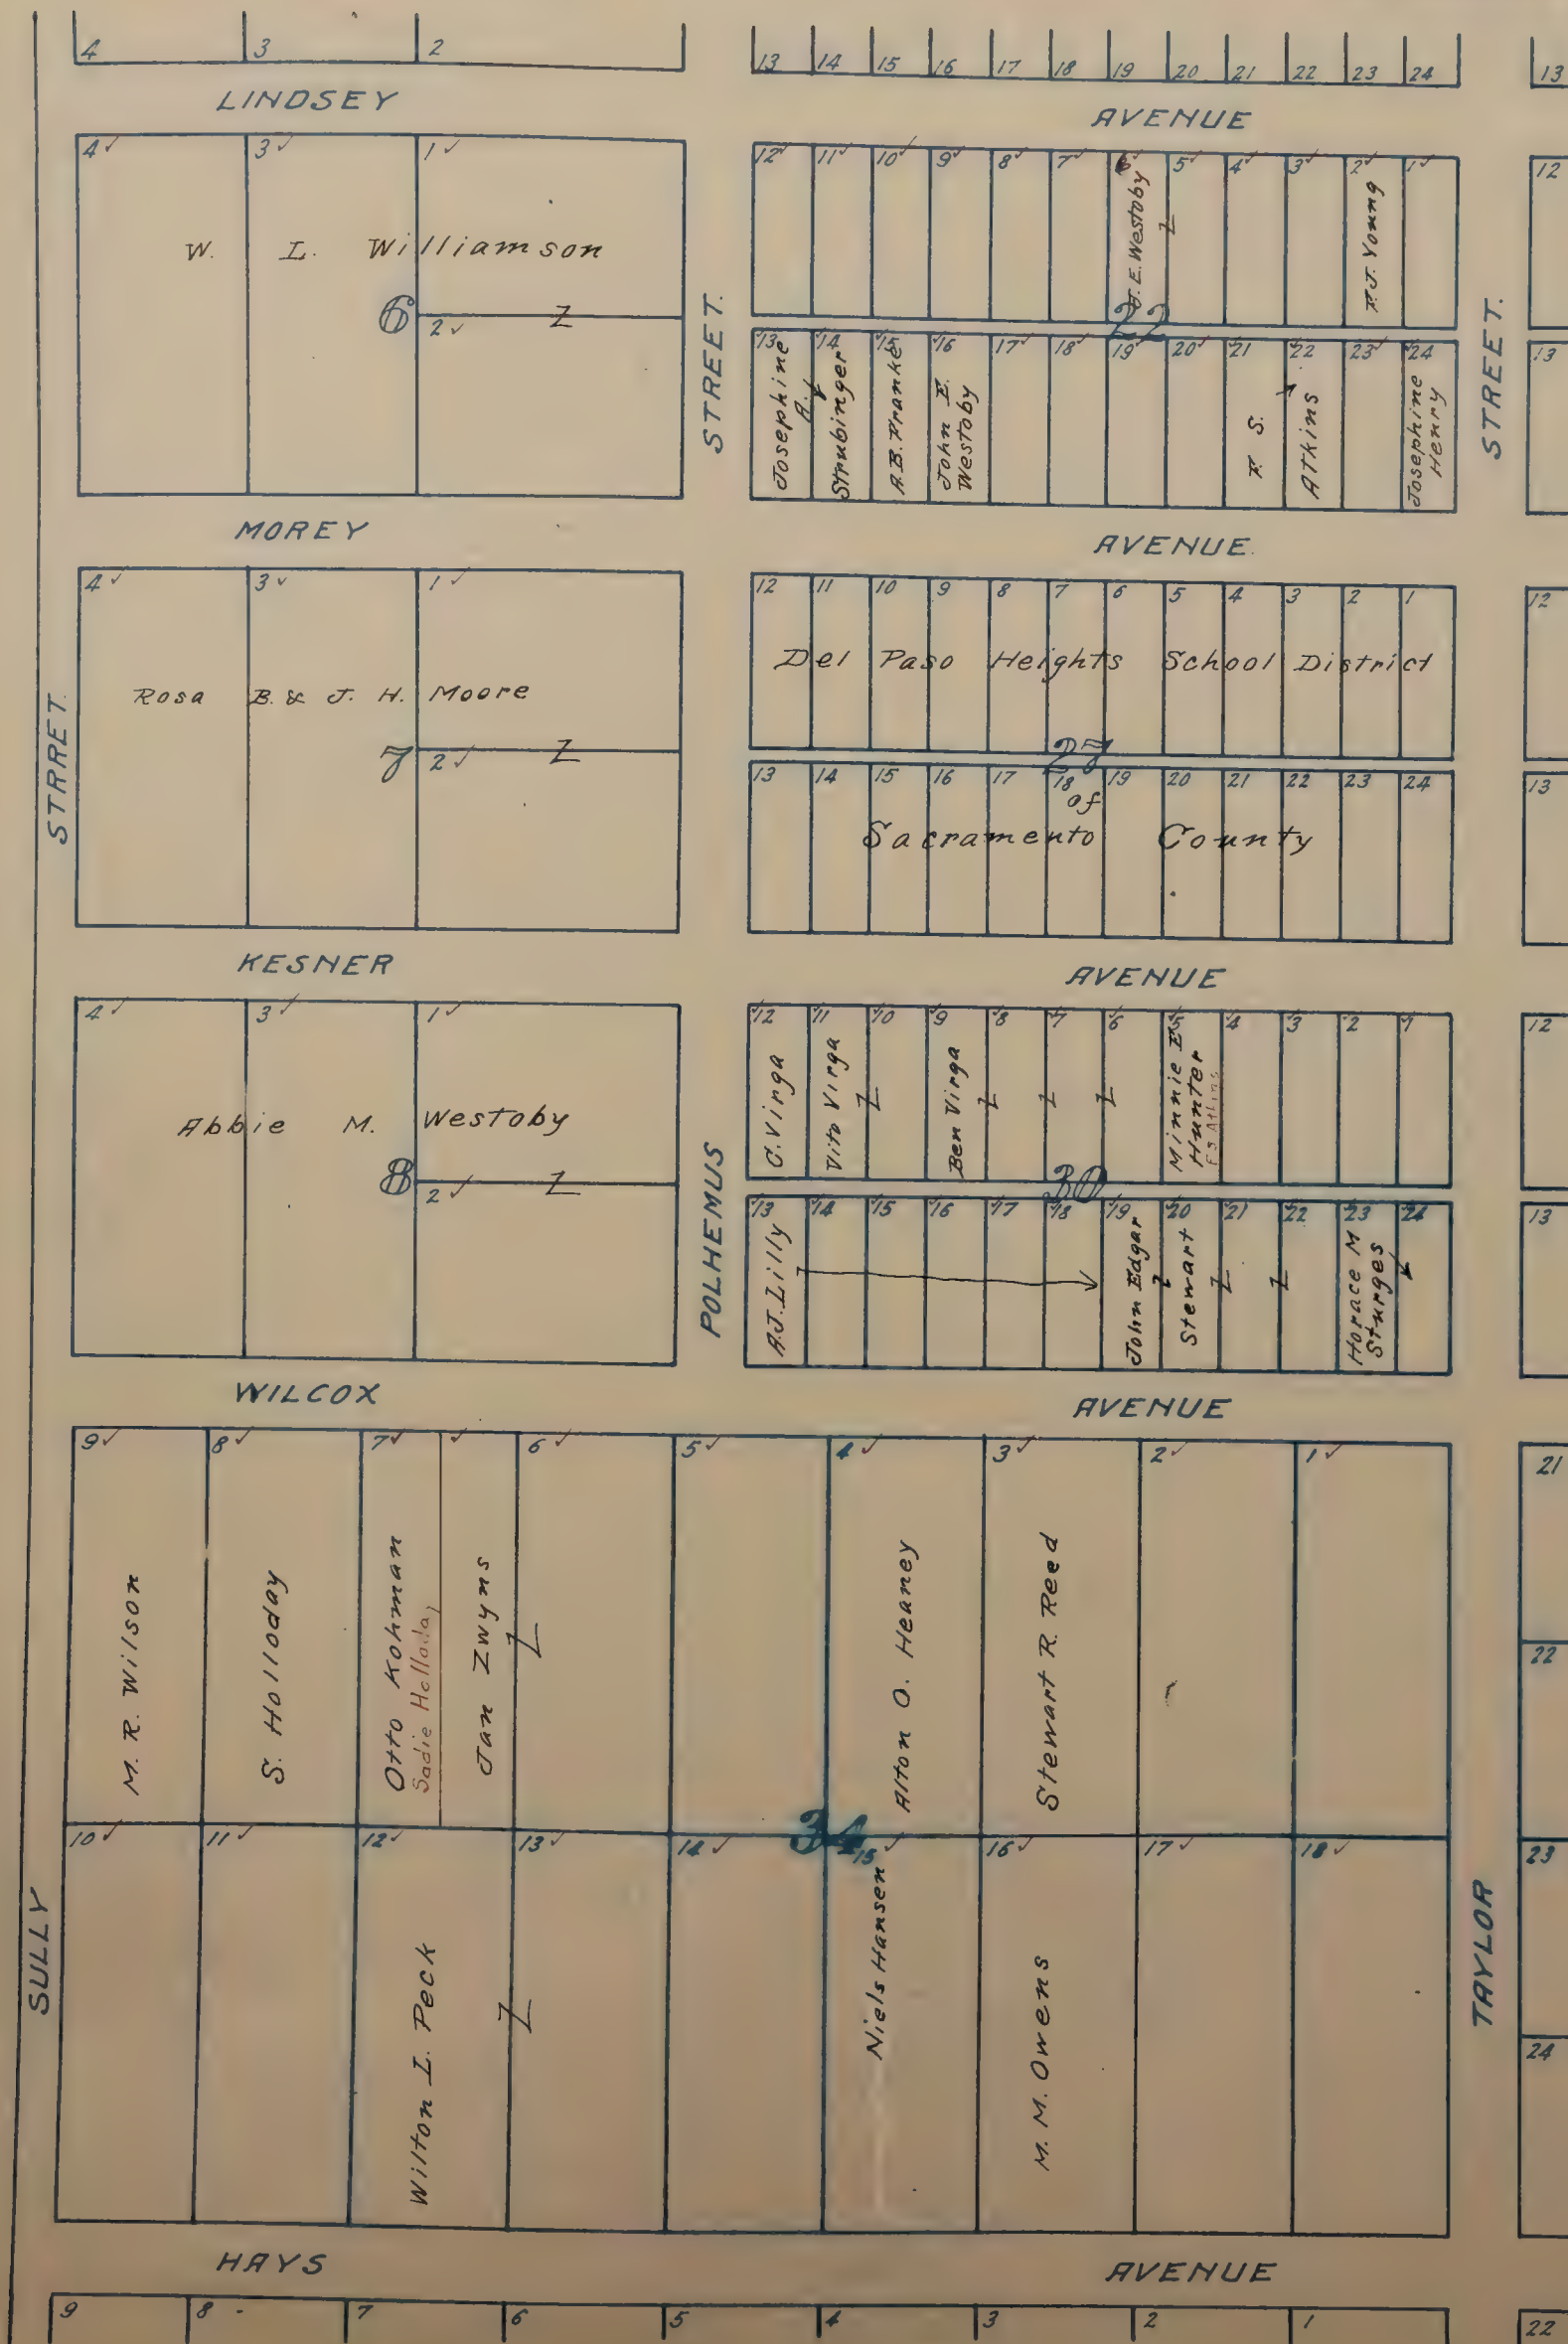 4 3 2
13 14 15 16 17 18 19 20 21 22 23 24
13
LINDSEY AVENUE
4 3 1
W. L. Williamson
6
2
STREET.
12 11 10 9 8 7 6 5 4 3 2 1
J. E. Westoby
F. J. Young
22
13 14 15 16 17 18 19 20 21 22 23 24
Josephine
A.
Strubinger
A. B. Franke
John E.
Westoby
F. S.
Atkins
Josephine
Henry
STREET.
12
13
MOREY AVENUE.
4 3 1
Rosa B. & J. H. Moore
7
2
STRRET.
12 11 10 9 8 7 6 5 4 3 2 1
Del Paso Heights School District
27
13 14 15 16 17 18 19 20 21 22 23 24
of
Sacramento County
12
13
KESNER AVENUE
4 3 1
Abbie M. Westoby
8
2
POLHEMUS
12 11 10 9 8 7 6 5 4 3 2 1
C. Virga
Vito Virga
Ben Virga
Minnie E
Hunter
F S Atkins
30
13 14 15 16 17 18 19 20 21 22 23 24
A.J. Lilly
John Edgar
Stewart
Horace M
Sturges
12
13
WILCOX AVENUE
9 8 7 6 5 4 3 2 1
M. R. Wilson
S. Holloday
Otto Kohman
Sadie Holloday
Jan Zwyns
Alton O. Heaney
Stewart R. Reed
34
10 11 12 13 14 15 16 17 18
Wilton L. Peck
Niels Hansen
M. M. Owens
SULLY
TAYLOR
21
22
23
24
HAYS AVENUE
9 8 7 6 5 4 3 2 1
22